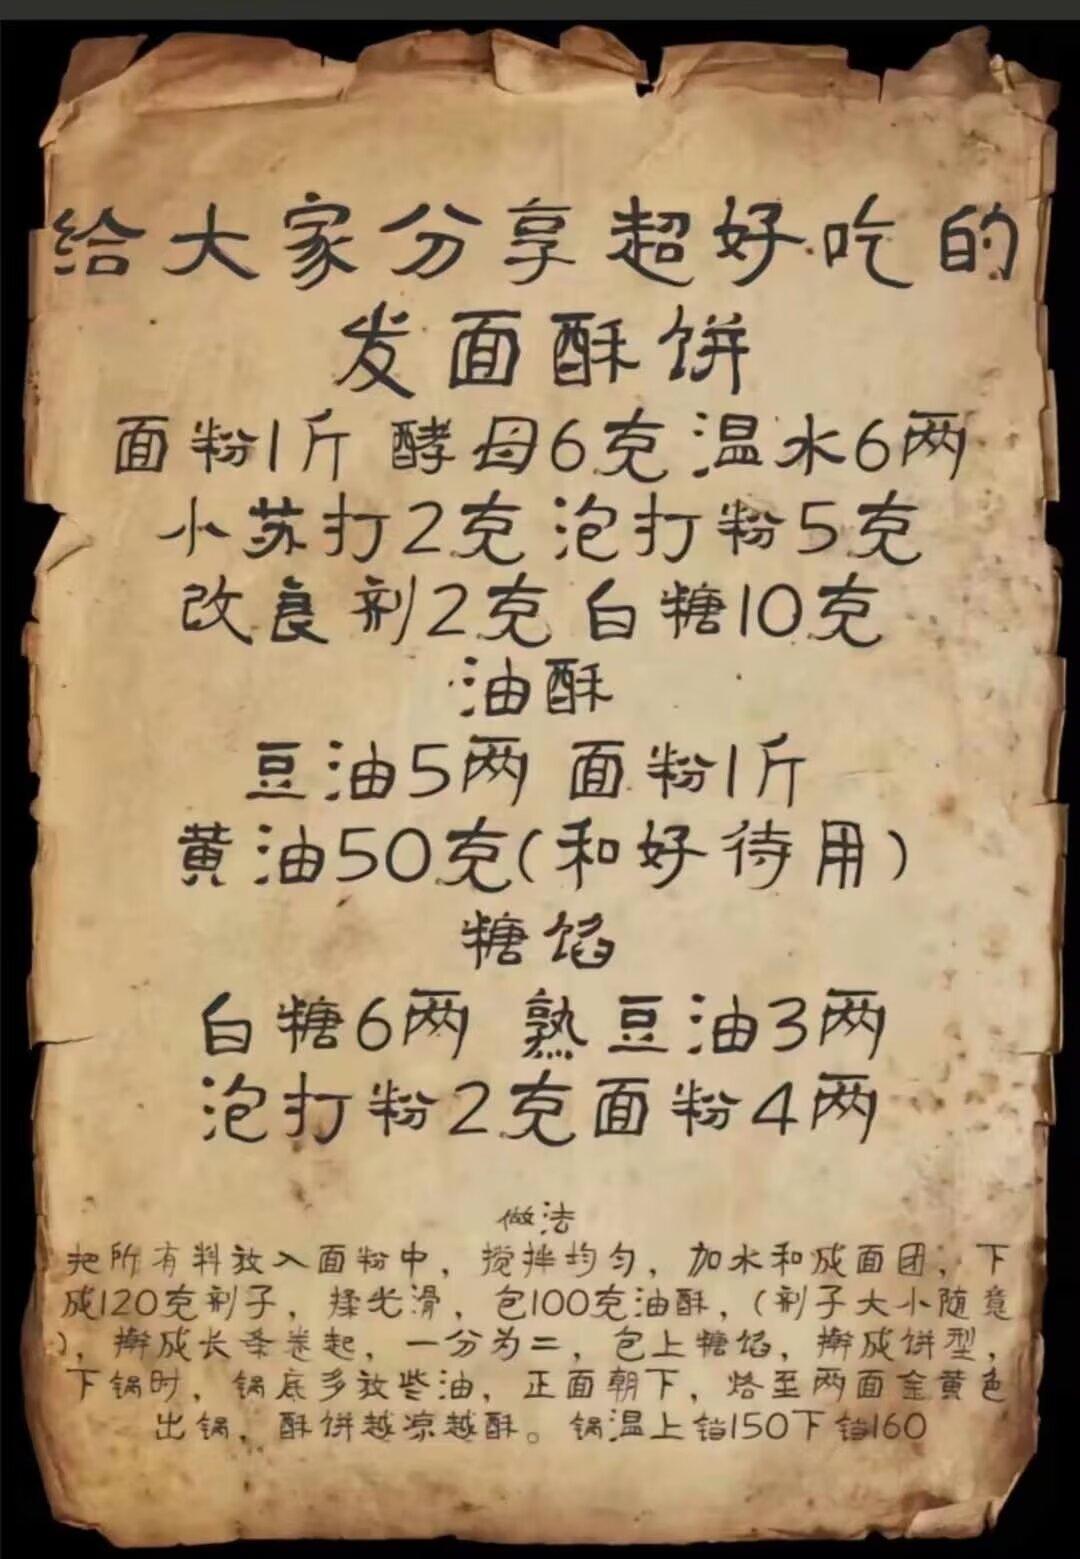 给大家分享超好吃的
发面酥饼
面粉1斤 酵母6克 温水6两
小苏打2克 泡打粉5克
改良剂2克 白糖10克
油酥
豆油5两 面粉1斤
黄油50克(和好待用)
糖馅
白糖6两 熟豆油3两
泡打粉2克面粉4两
做法
把所有料放入面粉中，搅拌均匀，加水和成面团，下
成120克剂子，揉光滑，包100克油酥，(剂子大小随意
)，擀成长条卷起，一分为二，包上糖馅，擀成饼型，
下锅时，锅底多放些油，正面朝下，烙至两面金黄色
出锅，酥饼越凉越酥。锅温上铛150下铛160